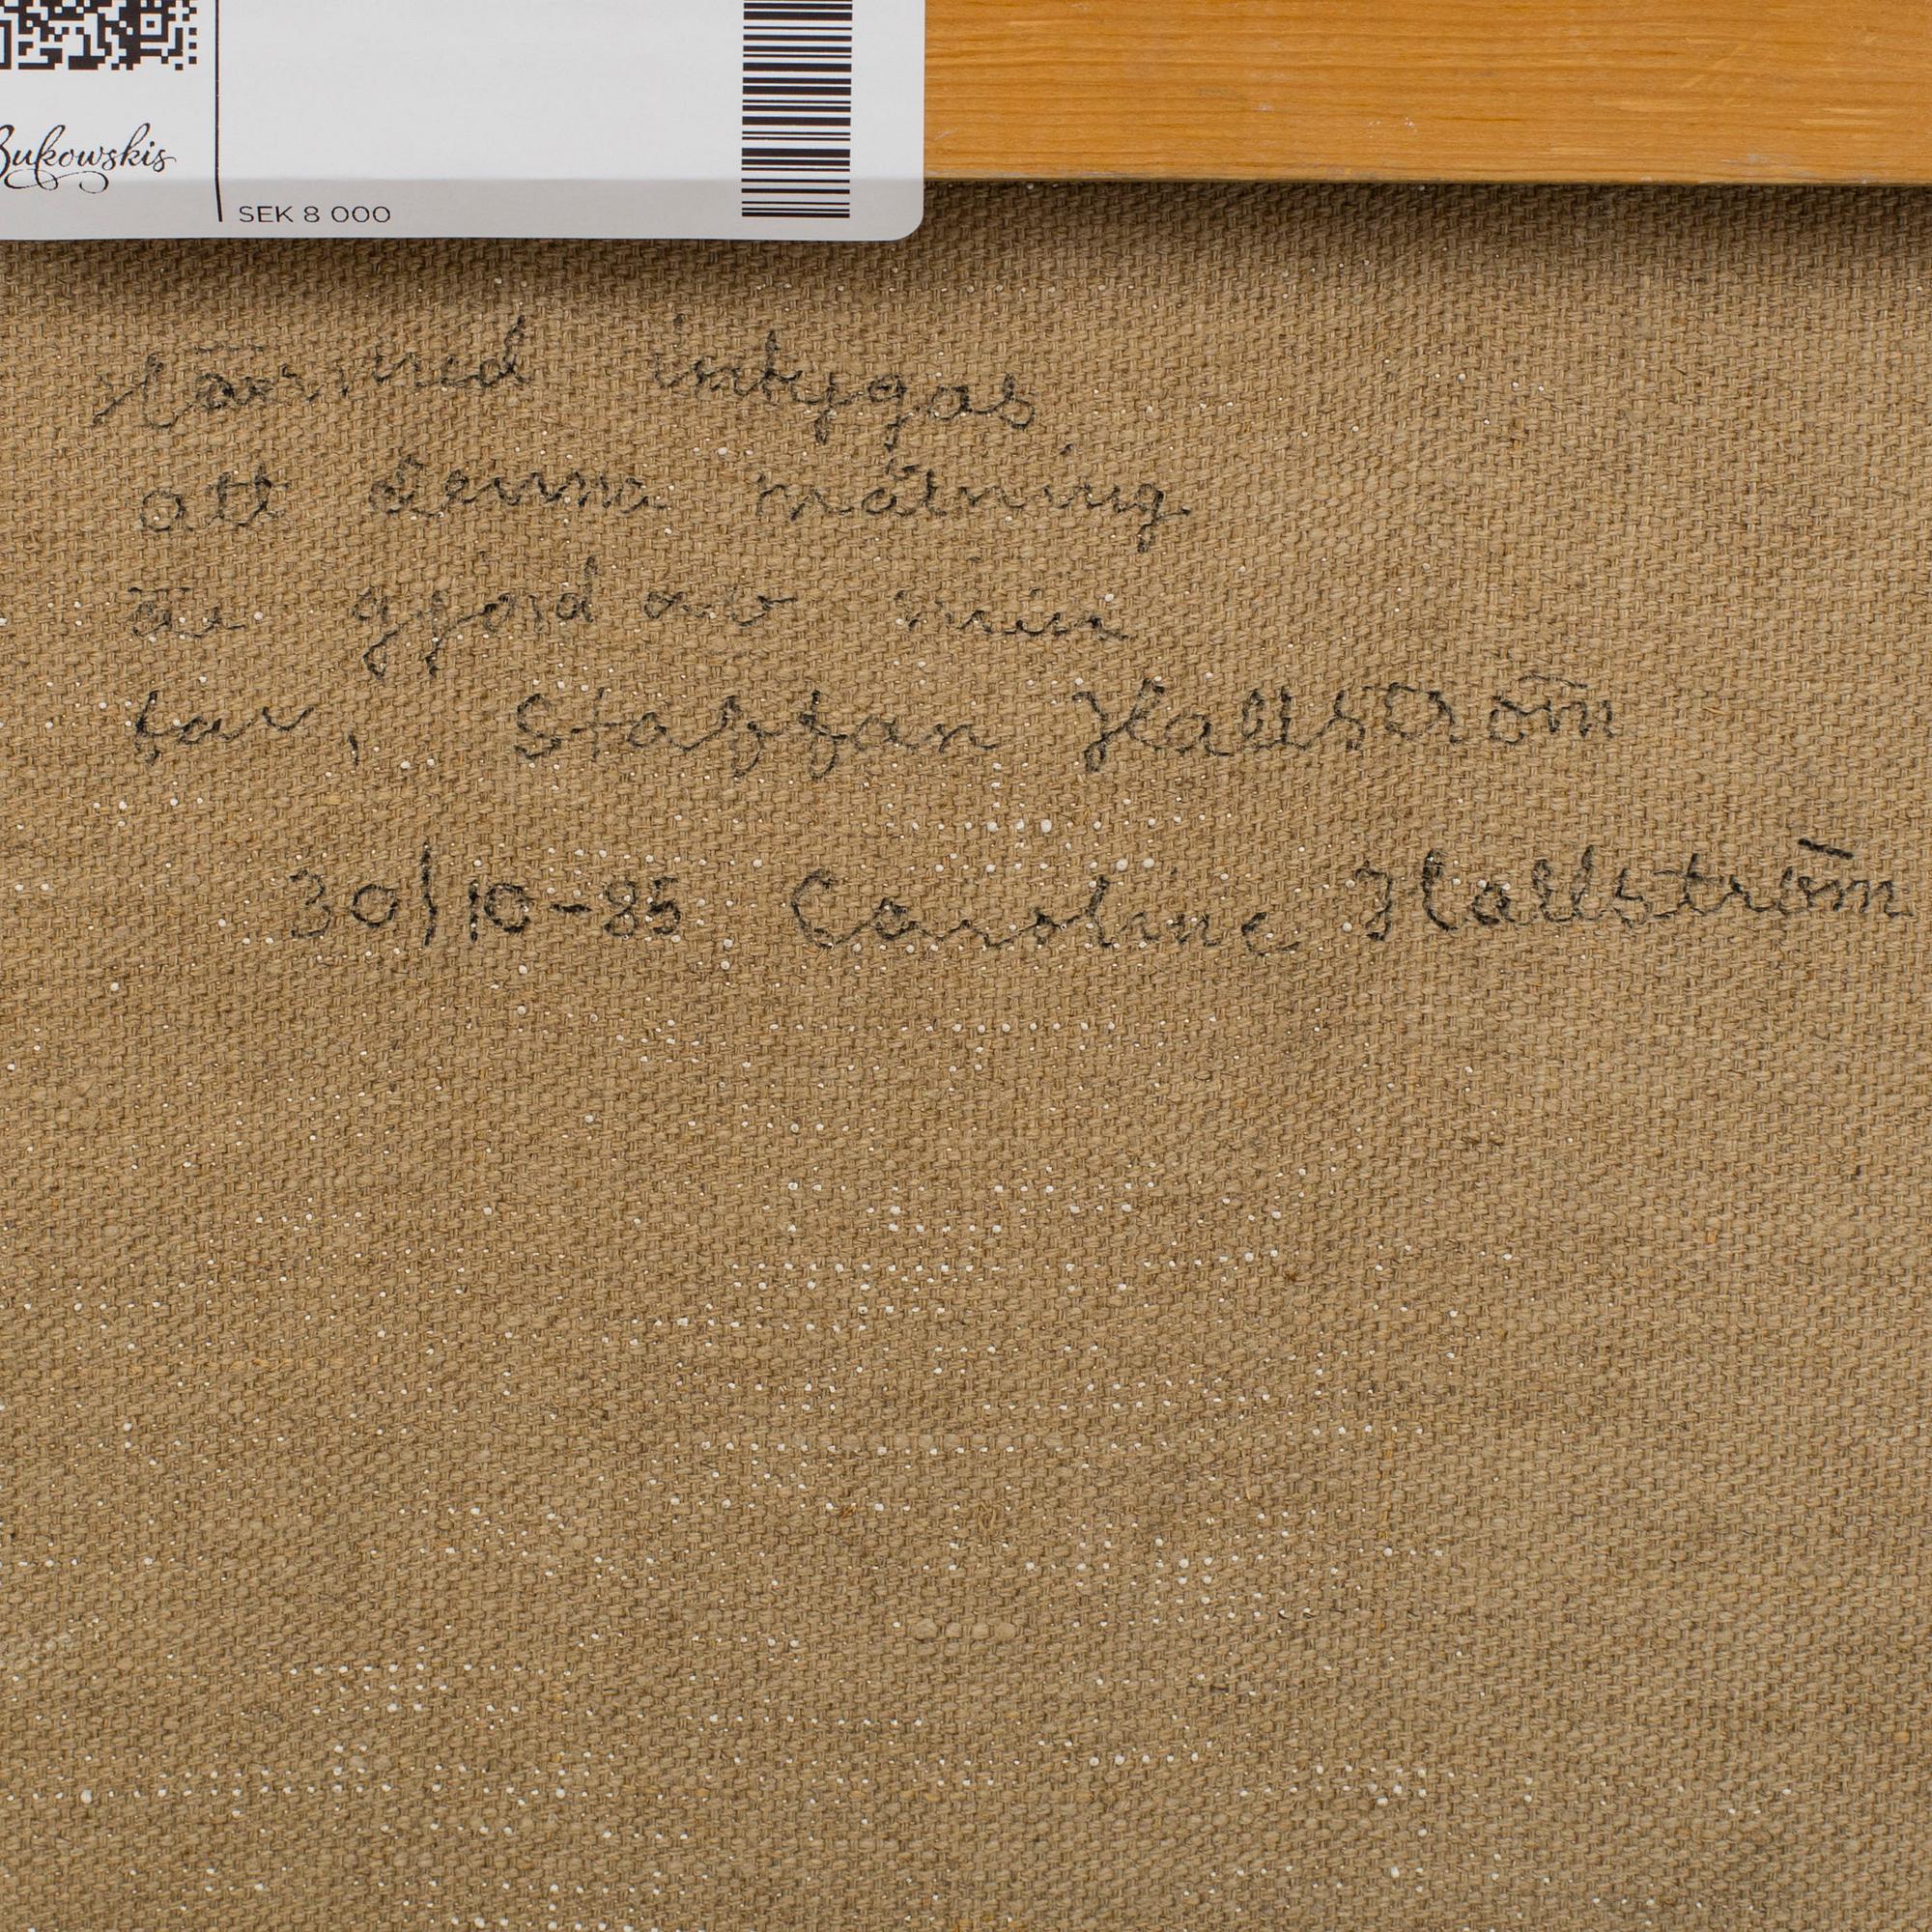 Bukowskis
SEK 8 000
Härmed intygas
att denna målning
är gjord av min
far, Staffan Hallström
30/10-85 Caroline Hallström